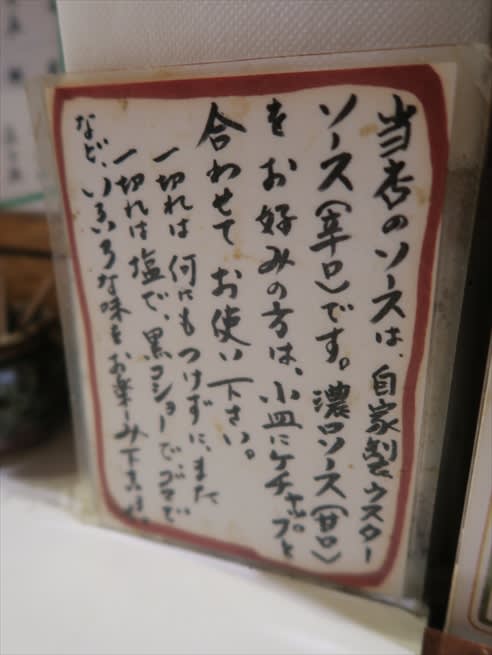 当店のソースは、自家製ウスター
ソース(辛口)です。濃口ソース(甘口)
をお好みの方は、小皿にケチャップと
合わせてお使い下さい。
一切れは何にもつけずに、また
一切れは塩で、黒コショーで、ゴマで
など、いろいろな味をお楽しみ下さいませ。